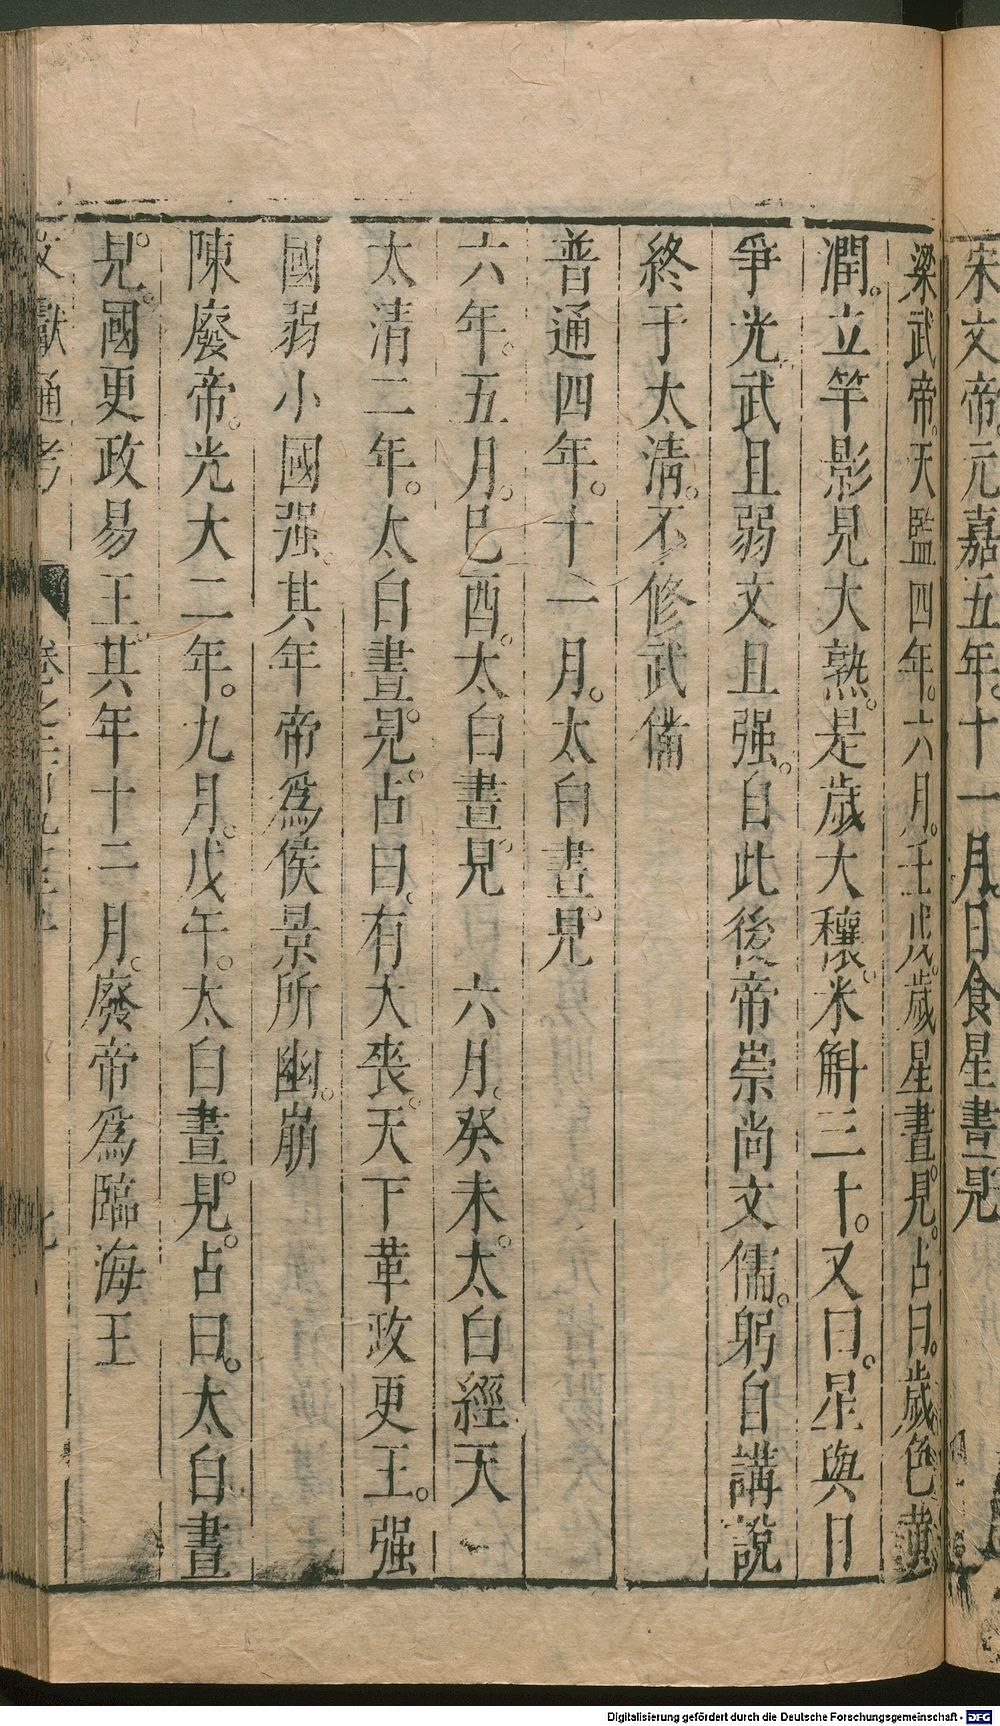 宋文帝。元嘉五年。十一月。日食星晝見
梁武帝。天監四年。六月。壬戌。歲星晝見。占曰。歲色黃
潤。立竿影見大熟。是歲大穰。米斛三十。又曰。星與日
爭光武且弱文且强。自此後帝崇尚文儒。躬自講說
終于太清。不修武備
普通四年。十一月。太白晝見
六年。五月。己酉。太白晝見　六月。癸未。太白經天
太清二年。太白晝見。占曰。有大喪。天下革政更王。强
國弱小國强。其年帝爲侯景所幽。崩
陳廢帝。光大二年。九月。戊午。太白晝見。占曰。太白晝
見。國更政易王。其年十二月。廢帝爲臨海王
文獻通考　卷之二百九十三
Digitalisierung gefördert durch die Deutsche Forschungsgemeinschaft - DFG